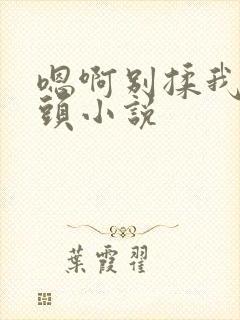 嗯啊别揉我
頭小説
葉霞翟